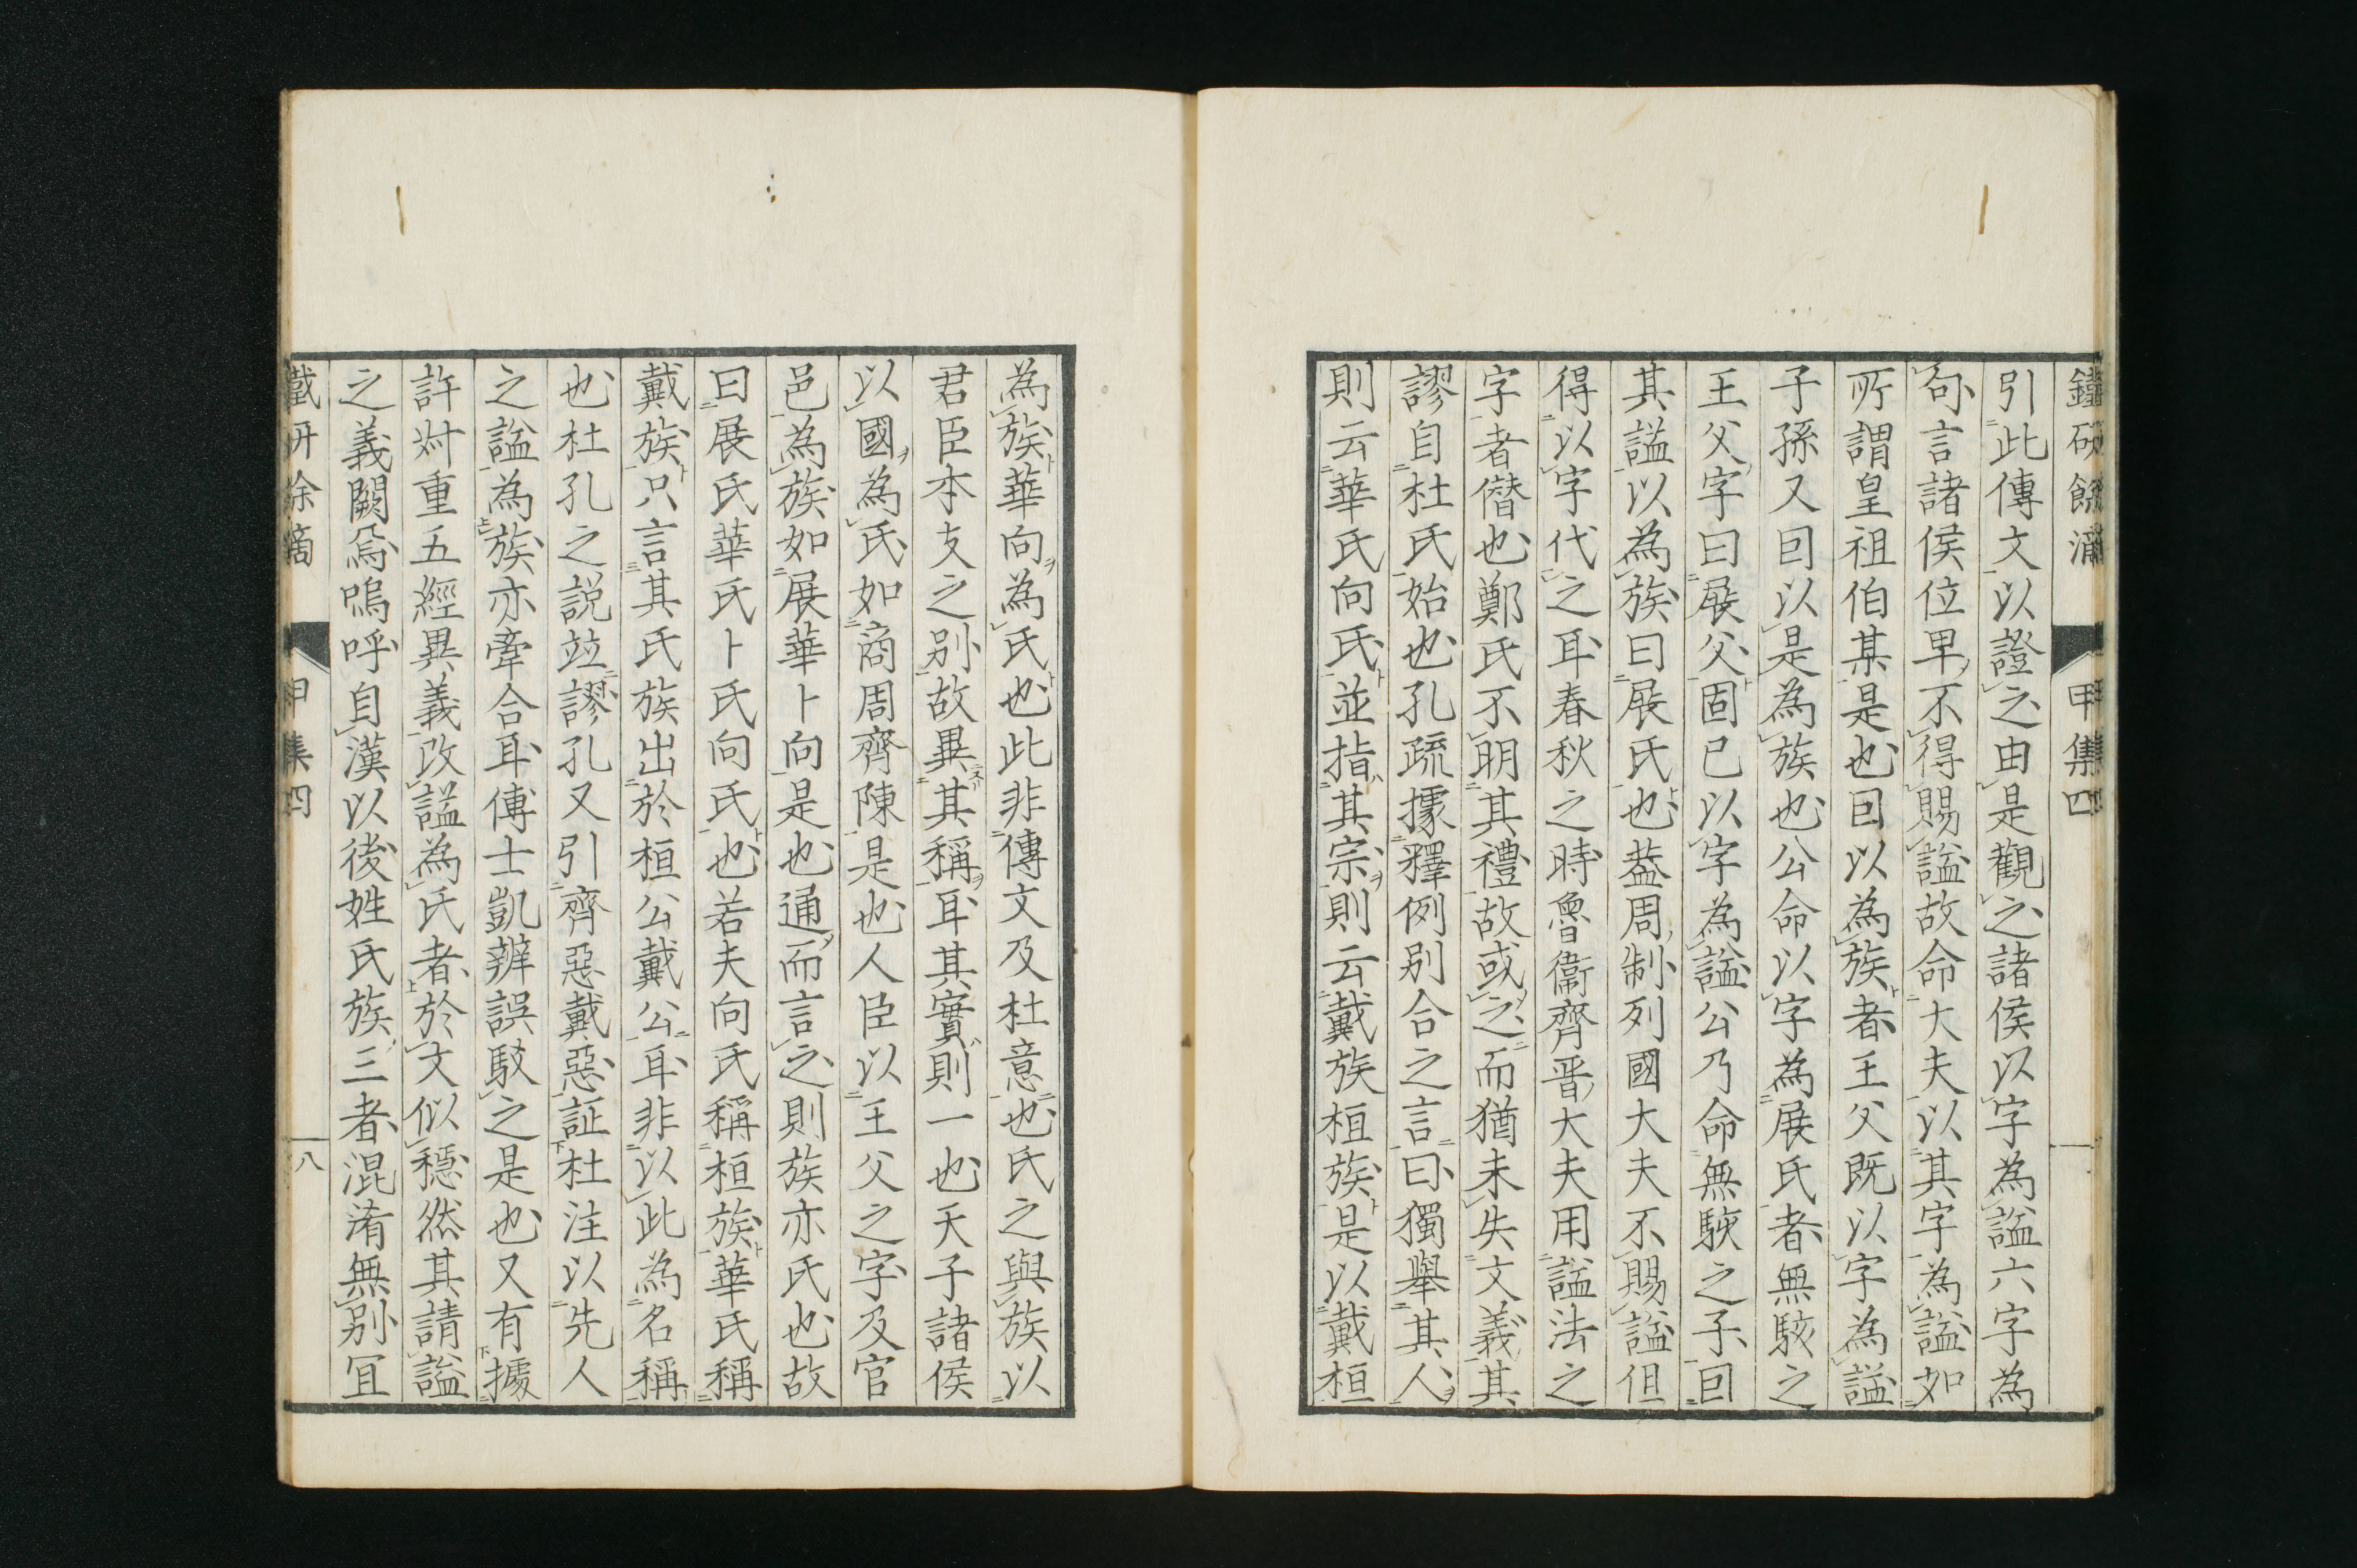 鐵研餘滴 甲集四
引此傳文以證之由是觀之諸侯以字為謚六字為
句言諸侯位卑不得賜謚故命大夫以其字為謚如
所謂皇祖伯某是也囙以為族者王父既以字為謚
子孫又囙以是為族也公命以字為展氏者無駭之
王父字曰展父固已以字為謚公乃命無駭之子囙
其謚以為族曰展氏也葢周制列國大夫不賜謚但
得以字代之耳春秋之時魯衞齊晋大夫用謚法之
字者僭也鄭氏不明其禮故或之而猶未失文義其
謬自杜氏始也孔疏據釋例別合之言曰獨舉其人
則云華氏向氏並指其宗則云戴族桓族是以戴桓
為族華向為氏也此非傳文及杜意也氏之與族以
君臣本支之别故異其稱耳其實則一也天子諸侯
以國為氏如商周齊陳是也人臣以王父之字及官
邑為族如展華卜向是也通而言之則族亦氏也故
曰展氏華氏卜氏向氏也若夫向氏稱桓族華氏稱
戴族只言其氏族出於桓公戴公耳非以此為名稱
也杜孔之説竝謬孔又引齊惡戴惡証杜注以先人
之謚為族亦牽合耳傅士凱辨誤駁之是也又有據
許叔重五經異義改謚為氏者於文似穩然其請謚
之義闕焉嗚呼自漢以後姓氏族三者混淆無别冝
鐵研餘滴 甲集四 八